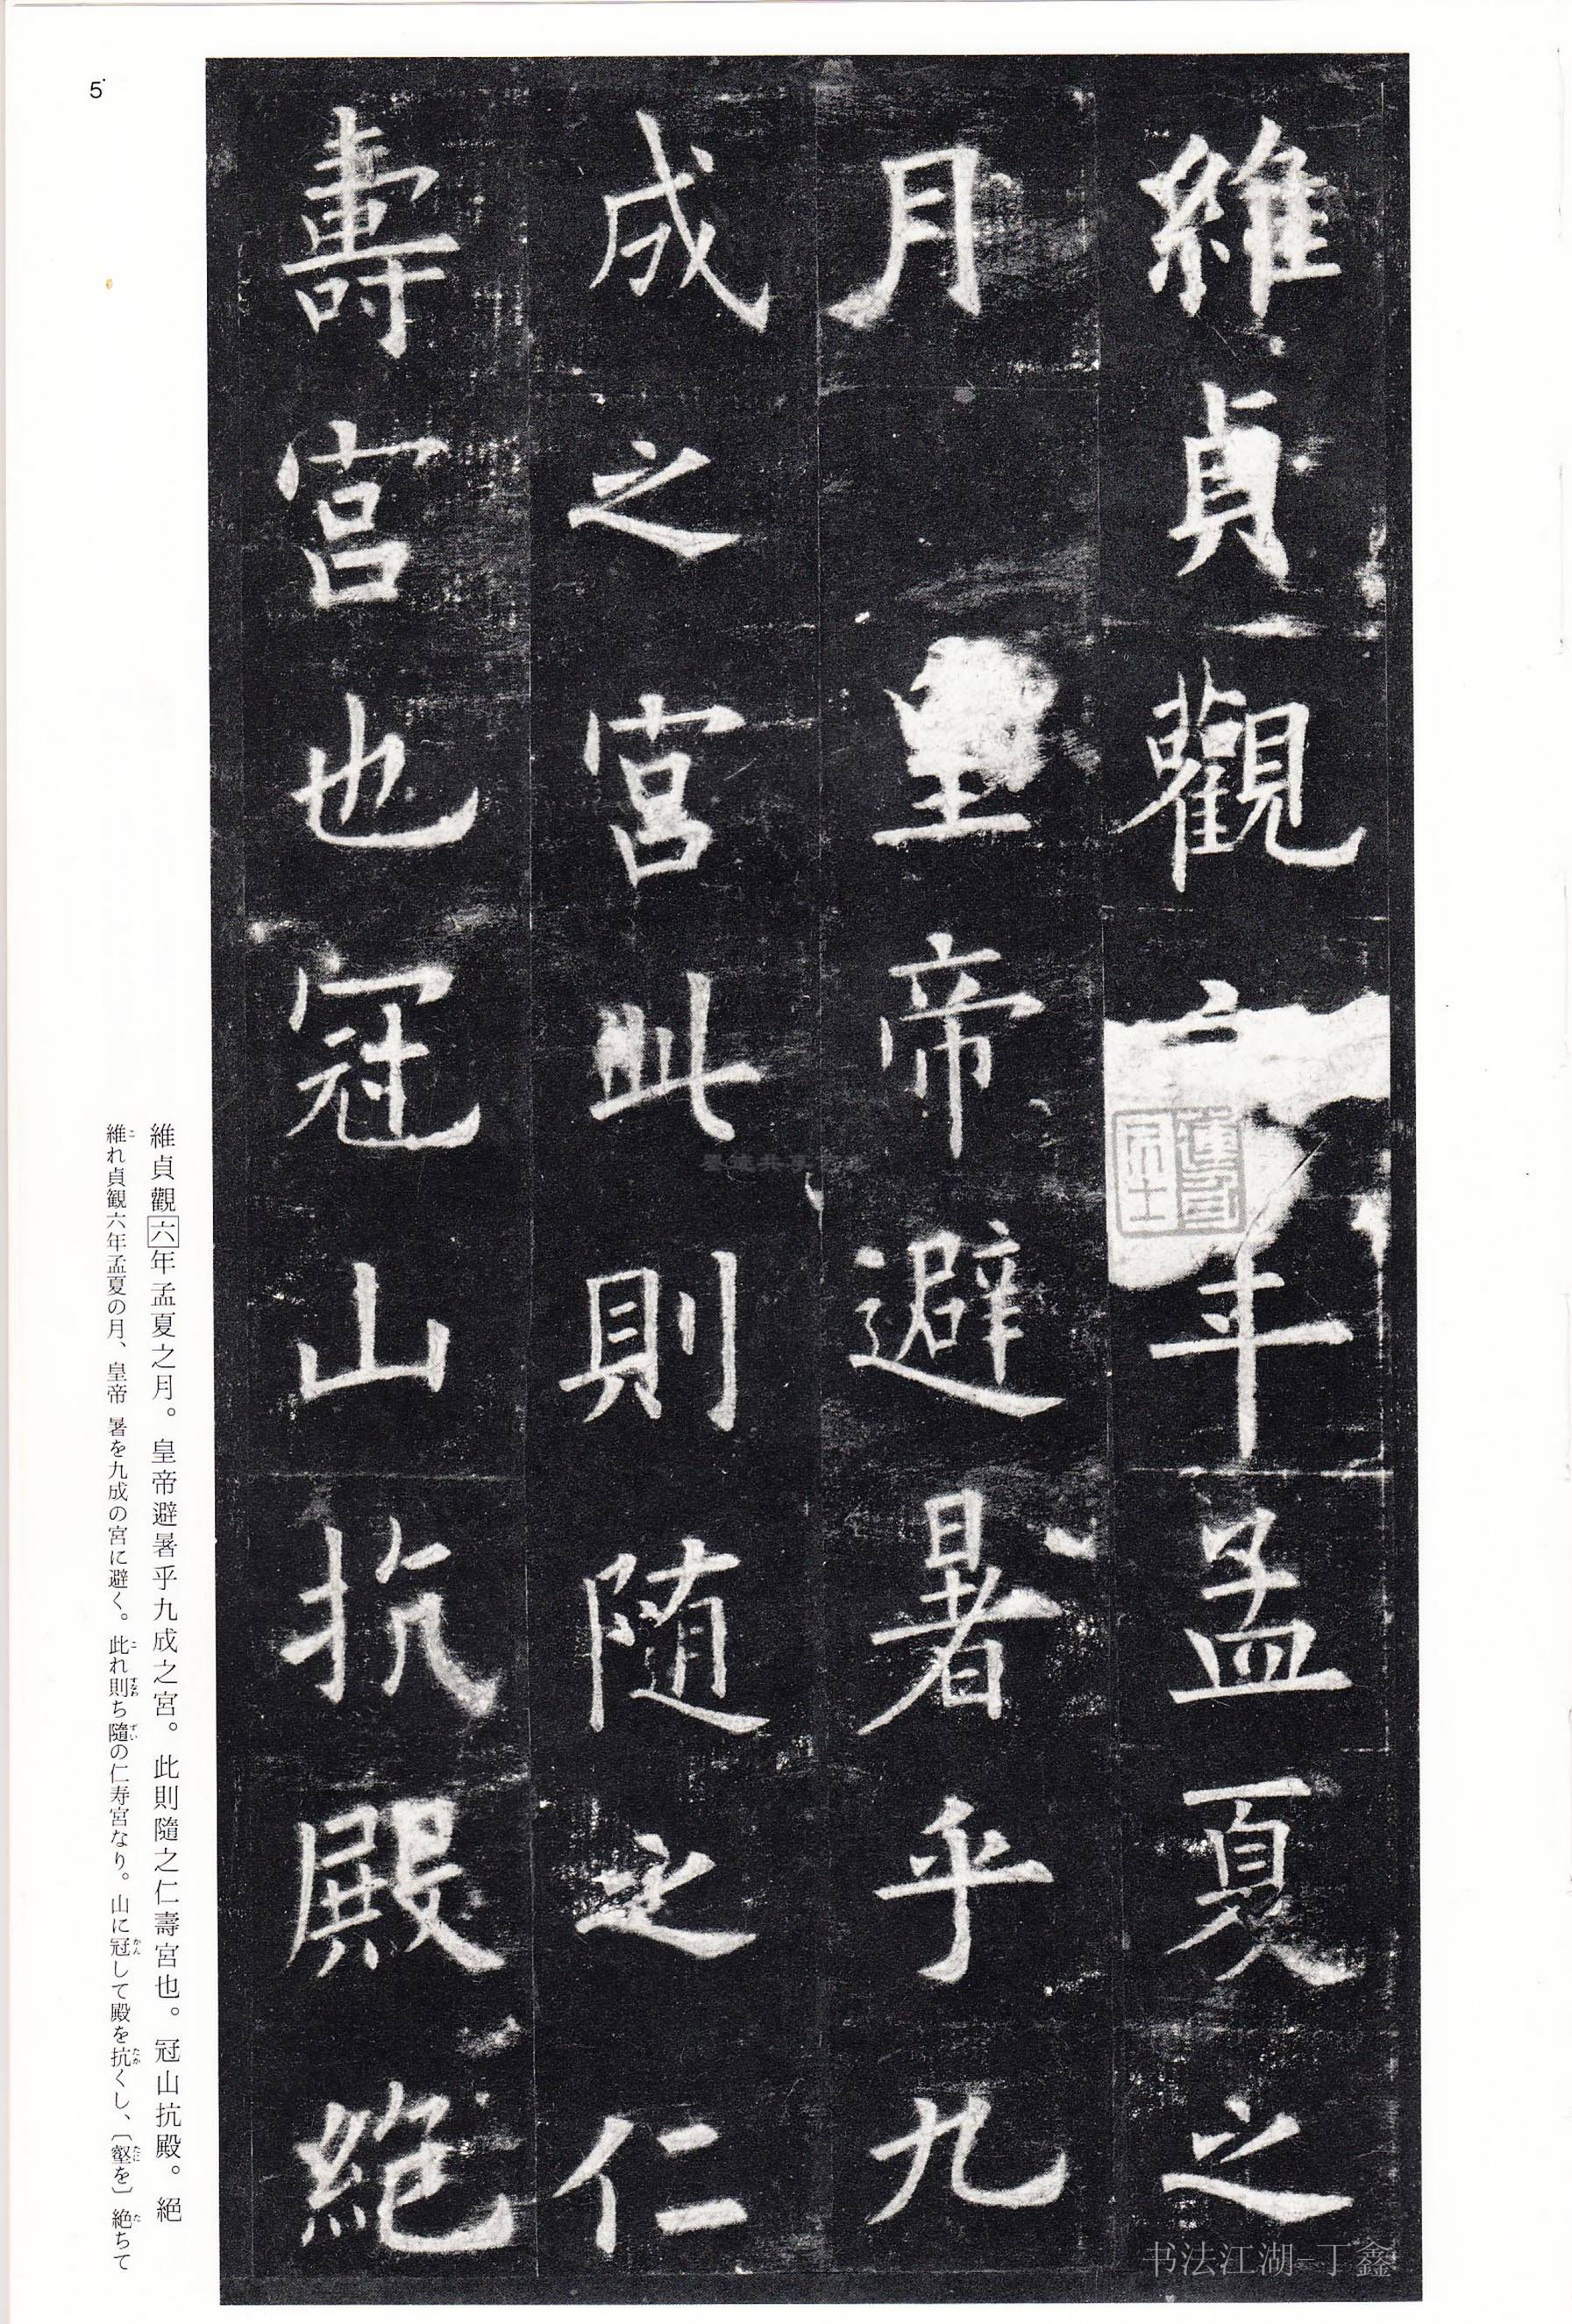 5
維貞觀六年孟夏之
月皇帝避暑乎九
成之宮此則隨之仁
壽宮也冠山抗殿絕
維貞觀六年孟夏之月。皇帝避暑乎九成之宮。此則隨之仁壽宮也。冠山抗殿。絕
維れ貞観六年孟夏の月、皇帝 暑を九成の宮に避く。此れ則ち隨の仁寿宮なり。山に冠して殿を抗くし、〔壑を〕絶ちて
书法江湖-丁鑫